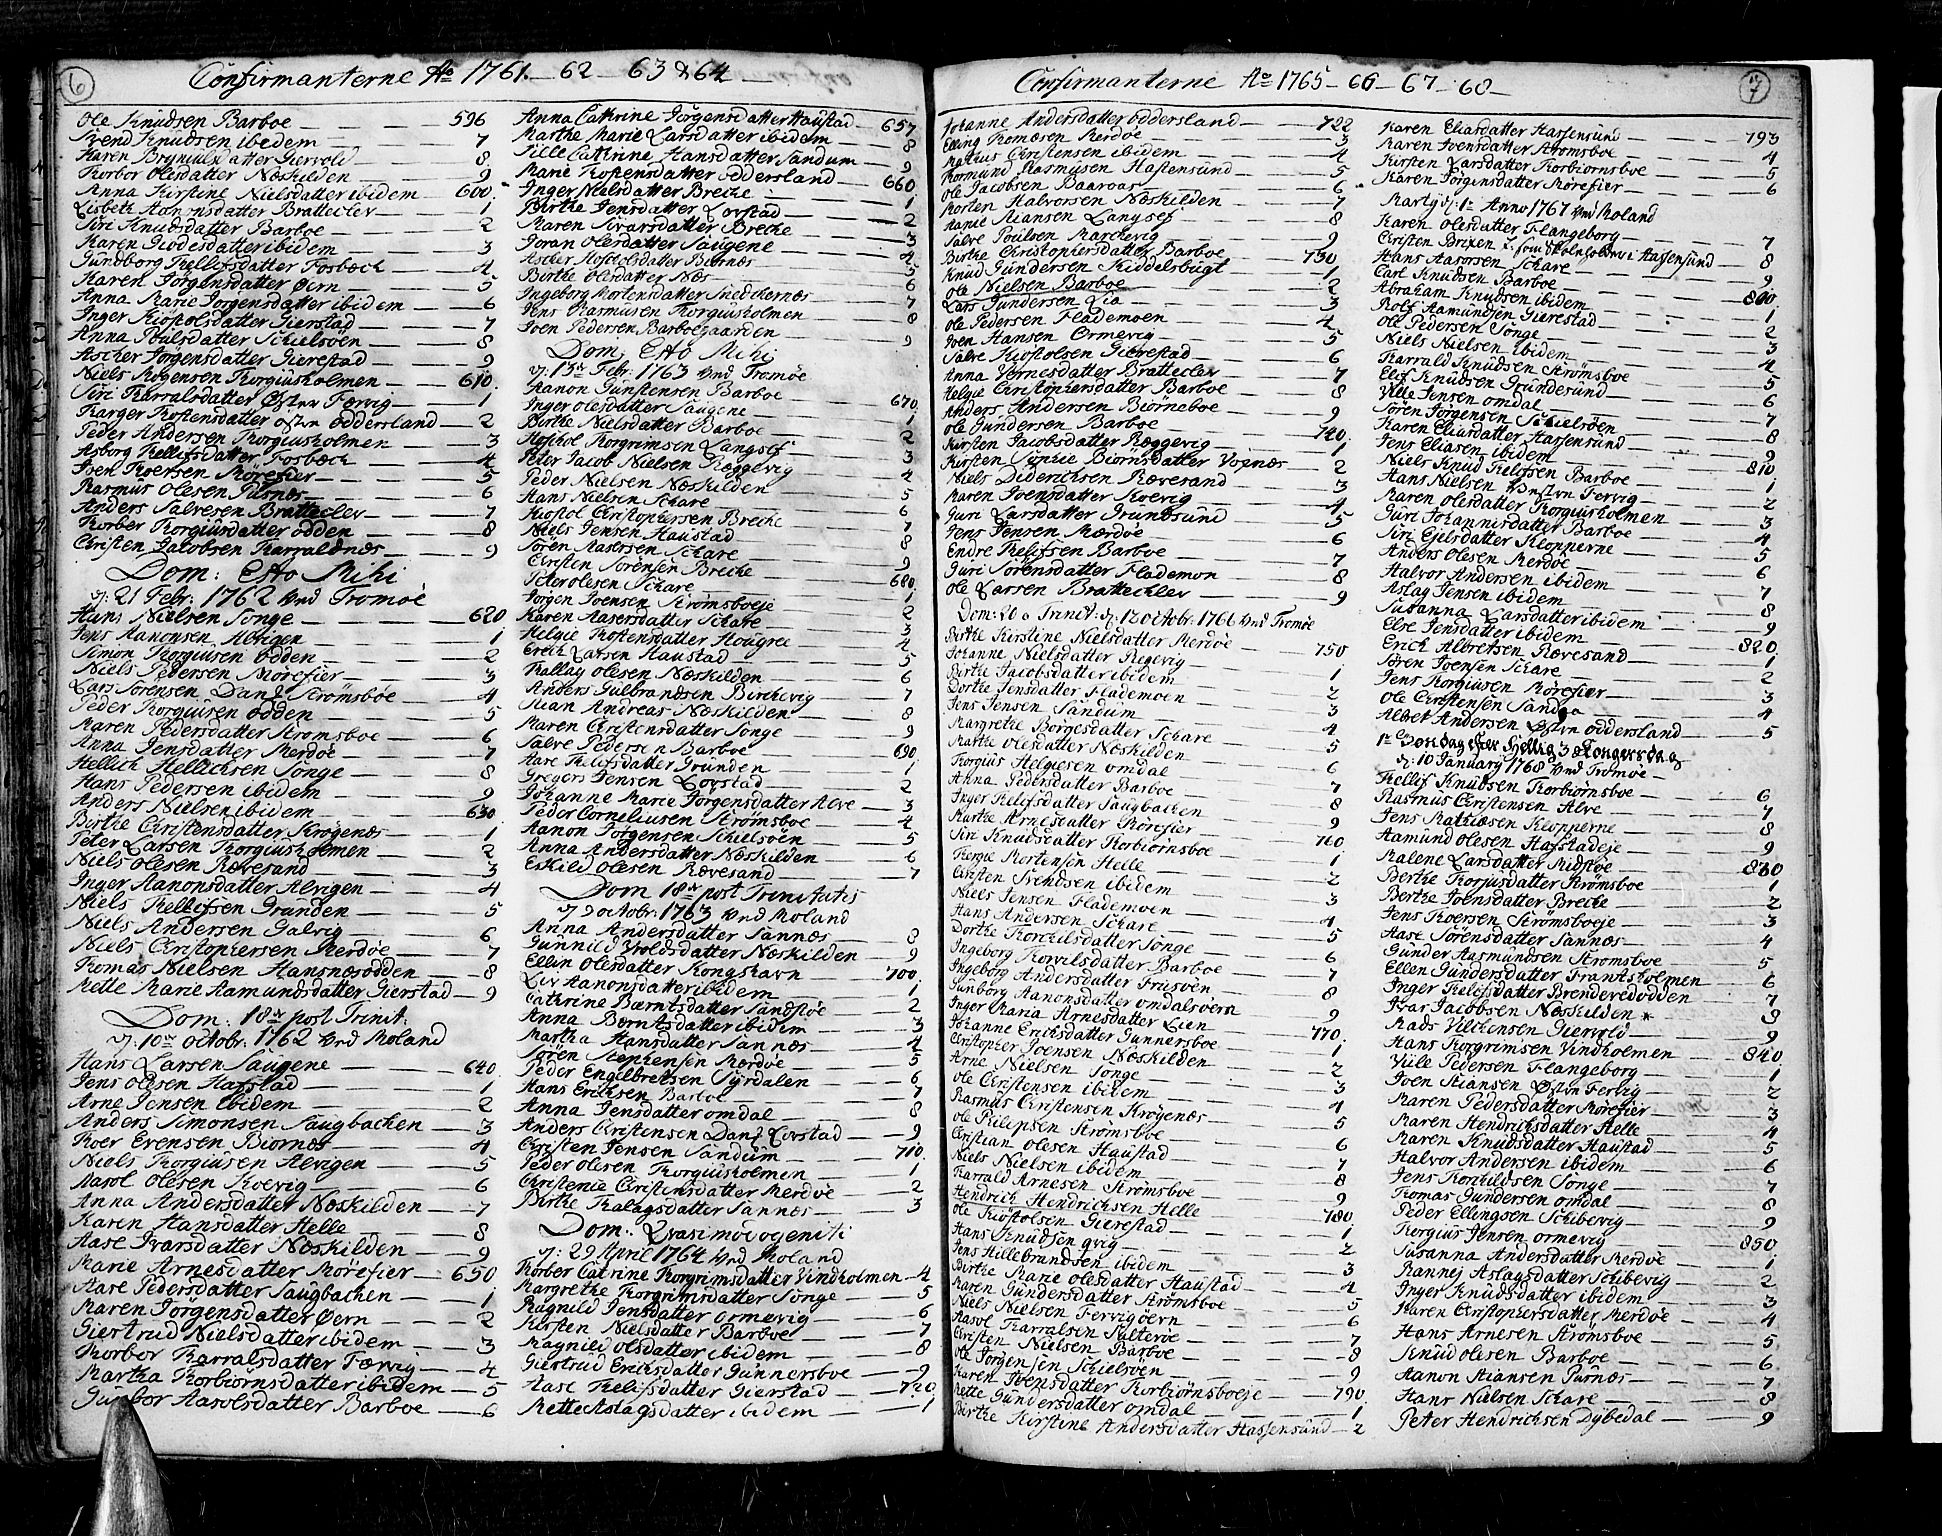 6
Confirmanterne Ao 1761. – 62 – 63 & 64 –
Ole Knudsen Barboe — 596
Svend Knudsen ibidem — 7
Karen Brynildsdatter Giervold — 8
Torbor Olesdatter Næskilden — 9
Anna Kirstine Nielsdatter ibidem — 600
Lisbeth Aanonsdatter Bratteclev — 1
Siri Knudsdatter Barboe — 2
Karen Giodesdatter ibidem — 3
Gundborg Kellefsdatter Fosbæck — 4
Karen Jörgensdatter Øern — 5
Anna Marie Jorgensdatter ibidem — 6
Inger Kiostolsdatter Gierstad — 7
Anna Poulsdatter Schielsöen — 8
Ascher Jorgensdatter Gierestad — 9
Niels Mogensen Torgiusholmen — 610
Siri Tarralsdatter Østre Fervig — 1
Targer Tostensdatter østre Oddersland — 2
Peder Andersen Torgiusholmen — 3
Asborg Kellefsdatter Fosbæck — 4
Iven Thoersen Mörefier — 5
Rasmus Olesen Pusnæs — 6
Anders Salvesen Bratteclev — 7
Torber Torgiusdatter Odden — 8
Christen Jacobsen Tarraldnæs — 9
Dom: Esto Mihi
d: 21 Febr: 1762 Vnd Tromöe
Hans Nielsen Songe — 620
Jens Aanonsen Alvigen — 1
Simon Torgiusen Odden — 2
Niels Pedersen Mörefier — 3
Lars Sörensen Danf Strömsböe — 4
Peder Torgiusen Odden — 5
Maren Pedersdatter Stromsboe — 6
Anna Jensdatter Merdöe — 7
Hellich Hellichsen Songe — 8
Hans Pedersen ibidem — 9
Anders Nielsen ibidem — 630
Birthe Christensdatter Krögenæs — 1
Peter Larsen Torgiusholmen — 2
Niels Olesen Rævesand — 3
Inger Aanonsdatter Alvigen — 4
Niels Tellefsen Grunden — 5
Niels Andersen Galvig — 6
Niels Christophersen Merdöe — 7
Thomas Nielsen Hansnæsodden — 8
Mette Marie Aamundsdatter Gierstad — 9
Dom: 18de post Trinit:
d: 10de Octobr: 1762 Vnd Moland
Hans Larsen Saugene — 640
Jens Olesen Hafstad — 1
Arne Jensen ibidem — 2
Anders Simonsen Saugbachen — 3
Roer Evensen Biornes — 4
Niels Torgiusen Alvigen — 5
Aasol Olesen Koevig — 6
Anna Andersdatter Næskilden — 7
Karen Hansdatter Helle — 8
Aase Ivarsdatter Næskilden — 9
Marie Arnesdatter Mörefier — 650
Aase Pedersdatter Saugbachen — 1
Maren Jorgensdatter Øern — 2
Giertrud Nielsdatter ibidem — 3
Torbor Tarralsdatter Færvig — 4
Martha Torbiörnsdatter ibidem — 5
Gunbor Aasolsdatter Barboe — 6
Anna Cathrine Jorgensdatter Haustad — 657
Marthe Marie Larsdatter ibidem — 8
Sille Cathrine Hansdatter Sandum — 9
Marie Tostensdatter Oddersland — 660
Inger Nielsdatter Breche — 1
Birthe Jensdatter Lovstad — 2
Maren Sivarsdatter Breche — 3
Joran Olesdatter Saugene — 4
Ascher Aoscholsdatter Biornæs — 5
Berthe Olesdatter Næs — 6
Ingeborg Mortensdatter Snedkernæs — 7
Jens Rasmusen Torgiusholmen — 8
Joen Pedersen Barboegaarden — 9
Dom Esto Mihi
d: 13de Febr: 1763 Vnd Tromöe
Aanon Gunstensen Barboe — 670
Inger Olesdatter Saugene — 1
Birthe Nielsdatter Barboe — 2
Aoschol Torgrimsen Langsef — 3
Peter Jacob Nielsen Ræggevig — 4
Peder Nielsen Næskilden — 5
Hans Nielsen Schare — 6
Kiostol Christophersen Breche — 7
Niels Jensen Haustad — 8
Sören Aasersen Schare — 9
Christen Sörensen Breche — 680
Peter Olesen Schare — 1
Jörgen Joensen Strömsboeje — 2
Karen Aasersdatter Schare — 3
Helgie Tostensdatter Hougree — 4
Erich Larsen Haustad — 5
Kallag Olesen Næskilden — 6
Anders Gulbrandsen Birchevig — 7
Stian Andreas Næskilden — 8
Maren Christensdatter Songe — 9
Salve Pedersen Barboe — 690
Aase Tellefsdatter Grunden — 1
Gregers Jensen Lovstad — 2
Johanne Marie Jorgensdatter Alve — 3
Peder Corneliusen Strömsboe — 4
Aanon Jorgensen Schielsöen — 5
Anna Andersdatter Næskilden — 6
Eskild Olesen Rævesand — 7
Dom 18de post Trinitatis
d: 9 Octobr: 1763 Vnd Moland
Anna Andersdatter Sannæs — 8
Gunnild Troldsdatter Næskilden — 9
Ellen Olesdatter Kongshavn — 700
Liv Aanonsdatter ibidem — 1
Cathrine Bærntsdatter Sandstöe — 2
Anna Berntsdatter ibidem — 3
Martha Hansdatter Sannæs — 4
Sören Stephensen Mærdöe — 5
Peder Engelbretsen Syrdalen — 6
Hans Erichsen Barboe — 7
Anna Jensdatter Omdal — 8
Anders Christensen Danf Lovstad — 9
Christen Jensen Sandum — 710
Peder Olesen Torgiusholmen — 1
Christence Christensdatter Merdöe — 2
Birthe Thalagsdatter Sannæs — 3
Dom: Qvasimodogeniti
d: 29 April 1764 Vnd Moland
Torber Catrine Torgrimsdatter Vindholmen — 4
Margrethe Torgrimsdatter Songe — 5
Ragnild Jensdatter Ormevig — 6
Kirsten Nielsdatter Barboe — 7
Magnild Olsdatter ibidem — 8
Giertrud Erichsdatter Gunnersboe — 9
Aase Thelefsdatter Gierstad — 720
Mette Aslagsdatter ibidem — 1
7
Confirmanterne Ao 1765 – 66 – 67 – 68 –
Johanne Andersdatter Oddersland — 722
Elling Thomæsen Merdöe — 3
Mathius Christensen ibidem — 4
Tormund Rasmusen Hastensund — 5
Ole Jacobsen Baaroas — 6
Morten Halvorsen Næskilden — 7
Marie Stiansen Langsef — 8
Salve Poulsen Marchevig — 9
Birthe Christophersdatter Barboe — 730
Knud Gundersen Kiddelsbugt — 1
Ole Nielsen Barboe — 2
Lars Gundersen Lia — 3
Ole Pedersen Flademoen — 4
Joen Hansen Ormevig — 5
Salve Kiostolsen Gierestad — 6
Anna Vernesdatter Bratteclev — 7
Helgie Christophersdatter Barboe — 8
Anders Andersen Biörneboe — 9
Ole Gundersen Barboe — 740
Kirsten Jacobsdatter Ræggevig — 1
Kirsten Sophie Biörnsdatter Vognæs — 2
Niels Diderichsen Rævesand — 3
Maren Joensdatter Koevig — 4
Guri Larsdatter Grundsund — 5
Jens Jensen Mærdöe — 6
Endre Thelefsen Barboe — 7
Guri Sörensdatter Flademon — 8
Ole Larsen Bratteclev — 9
Dom: 20 a Trinit: d: 12 Octobr: 1766 Vnd Tromöe
Birthe Kirstine Nielsdatter Merdöe — 750
Johanne Nielsdatter Regevig — 1
Birthe Jacobsdatter ibidem — 2
Dorthe Jensdatter Flademoen — 3
Jens Jensen Sandum — 4
Margrethe Börgesdatter Schare — 5
Marthe Olesdatter Næskilden — 6
Torgius Helgiesen Omdal — 7
Anna Pedersdatter Barboe — 8
Inger Thelefsdatter Saugbachen — 9
Marthe Arnesdatter Mörefier — 760
Siri Knudsdatter Torbiörnsboe — 1
Tergie Mortensen Helle — 2
Christen Svendsen ibidem — 3
Niels Jensen Flademoen — 4
Hans Andersen Schare — 5
Dorthe Torchilsdatter Songe — 6
Ingeborg Torvilsdatter Barboe — 7
Ingeborg Andersdatter Frisöen — 8
Gunborg Aanonsdatter Omdalsöern — 9
Inger Maria Arnesdatter Lien — 770
Johanne Erichsdatter Gunnersboe — 1
Christopher Joensen Næskilden — 2
Arne Nielsen Songe — 3
Ole Christensen ibidem — 4
Rasmus Christensen Krögenæs — 5
Ole Philipsen Strömsboe — 6
Christian Olesen Haustad — 7
Niels Nielsen ibidem — 8
Tarrald Arnesen Strömsboe — 9
Hendrich Hendrichsen Helle — 780
Ole Kiöstolsen Gierestad — 1
Hans Knudsen Qvig — 2
Jens Hillebrandsen ibidem — 3
Birthe Marie Olesdatter Haustad — 4
Maren Gundersdatter Strömsboe — 5
Niels Nielsen Fervigöern — 6
Aasol Tarralsen Salteröe — 7
Christen Nielsen Barboe — 8
Ole Jorgensen Schielsöen — 9
Karen Jvensdatter Torbiörnsboeje — 790
Mette Gundersdatter Omdal — 1
Birthe Kirstine Andersdatter Hassensund — 2
Karen Eliasdatter Hassensund — 793
Maren Jvensdatter Stromsboe — 4
Kirsten Larsdatter Torbiornsboe — 5
Karen Jörgensdatter Mörefier — 6
Marty d: 1te Anno 1767 Vnd Moland
Karen Olesdatter Flangeborg — 7
Christen Brixen som Skoleholder i Hassensund — 8
Hans Aasorsen Schare — 9
Carl Knudsen Barboe — 800
Abraham Knudsen ibidem — 1
Rolf Aamundsen Gierestad — 2
Ole Pedersen Songe — 3
Niels Nielsen ibidem — 4
Tarrald Knudsen Strömsboe — 5
Elef Knudsen Grundesund — 6
Ville Jensen Omdal — 7
Sören Jörgensen Schielsöen — 8
Karen Eliasdatter Hassensund — 9
Jens Eliasen ibidem — 810
Niels Knud Thelefsen Barboe — 1
Hans Nielsen Vestre Fervig — 2
Maren Olesdatter Torgiusholmen — 3
Guri Johannisdatter Barboe — 4
Siri Ejelsdatter Klopperne — 5
Anders Olesen Merdöe — 6
Halvor Andersen ibidem — 7
Aslag Jensen ibidem — 8
Susanna Larsdatter ibidem — 9
Else Jensdatter ibidem — 820
Erich Albretsen Rævesand — 1
Sören Joensen Schare — 2
Jens Torgiusen Mörefier — 3
Ole Christensen Sandaa — 4
Albret Andersen Østre Oddersland — 5
1te Söndag efter Hellig 3 Kongersdag
d: 10 January 1768 Vnd Tromöe –
Tellef Knudsen Torbiörnsboe — 6
Rasmus Christensen Alve — 7
Jens Mathiæsen Klopperne — 8
Aamund Olesen Hafstadeje — 9
Malene Larsdatter Midstöe — 830
Berthe Torjusdatter Strömsboe — 1
Berthe Joensdatter Breche — 2
Jens Roersen Strömsboeje — 3
Aase Sörensdatter Sannæs — 4
Gunder Aasmundsen Stromsboe — 5
Ellen Gundersdatter Frantsholmen — 6
Inger Thelefsdatter Brenderedodden — 7
Ivar Jacobsen Næskilden — 8
Mads Vilchensen Giervold — 9
Hans Torgrimsen Vindholmen — 840
Ville Pedersen Flangeborg — 1
Joen Stiansen Østre Fervig — 2
Maren Pedersdatter Mörefier — 3
Maren Hendrichsdatter Helle — 4
Maren Knudsdatter Haustad — 5
Halvor Andersen ibidem — 6
Jens Torchildsen Songe — 7
Thomas Gundersen Omdal — 8
Peder Ellingsen Schibevig — 9
Torgius Jensen Ormevig — 850
Susanna Andersdatter Merdöe — 1
Rannej Aslagsdatter Schibevig — 2
Inger Knudsdatter ibidem — 3
Karen Christophersdatter Merdöe — 4
Hans Arnesen Strömsboe — 5
Knud Olesen Barboe — 6
Aanon Stiansen Pusnæs — 7
Hans Nielsen Schare — 8
Peter Hendrichsen Dybedal — 9